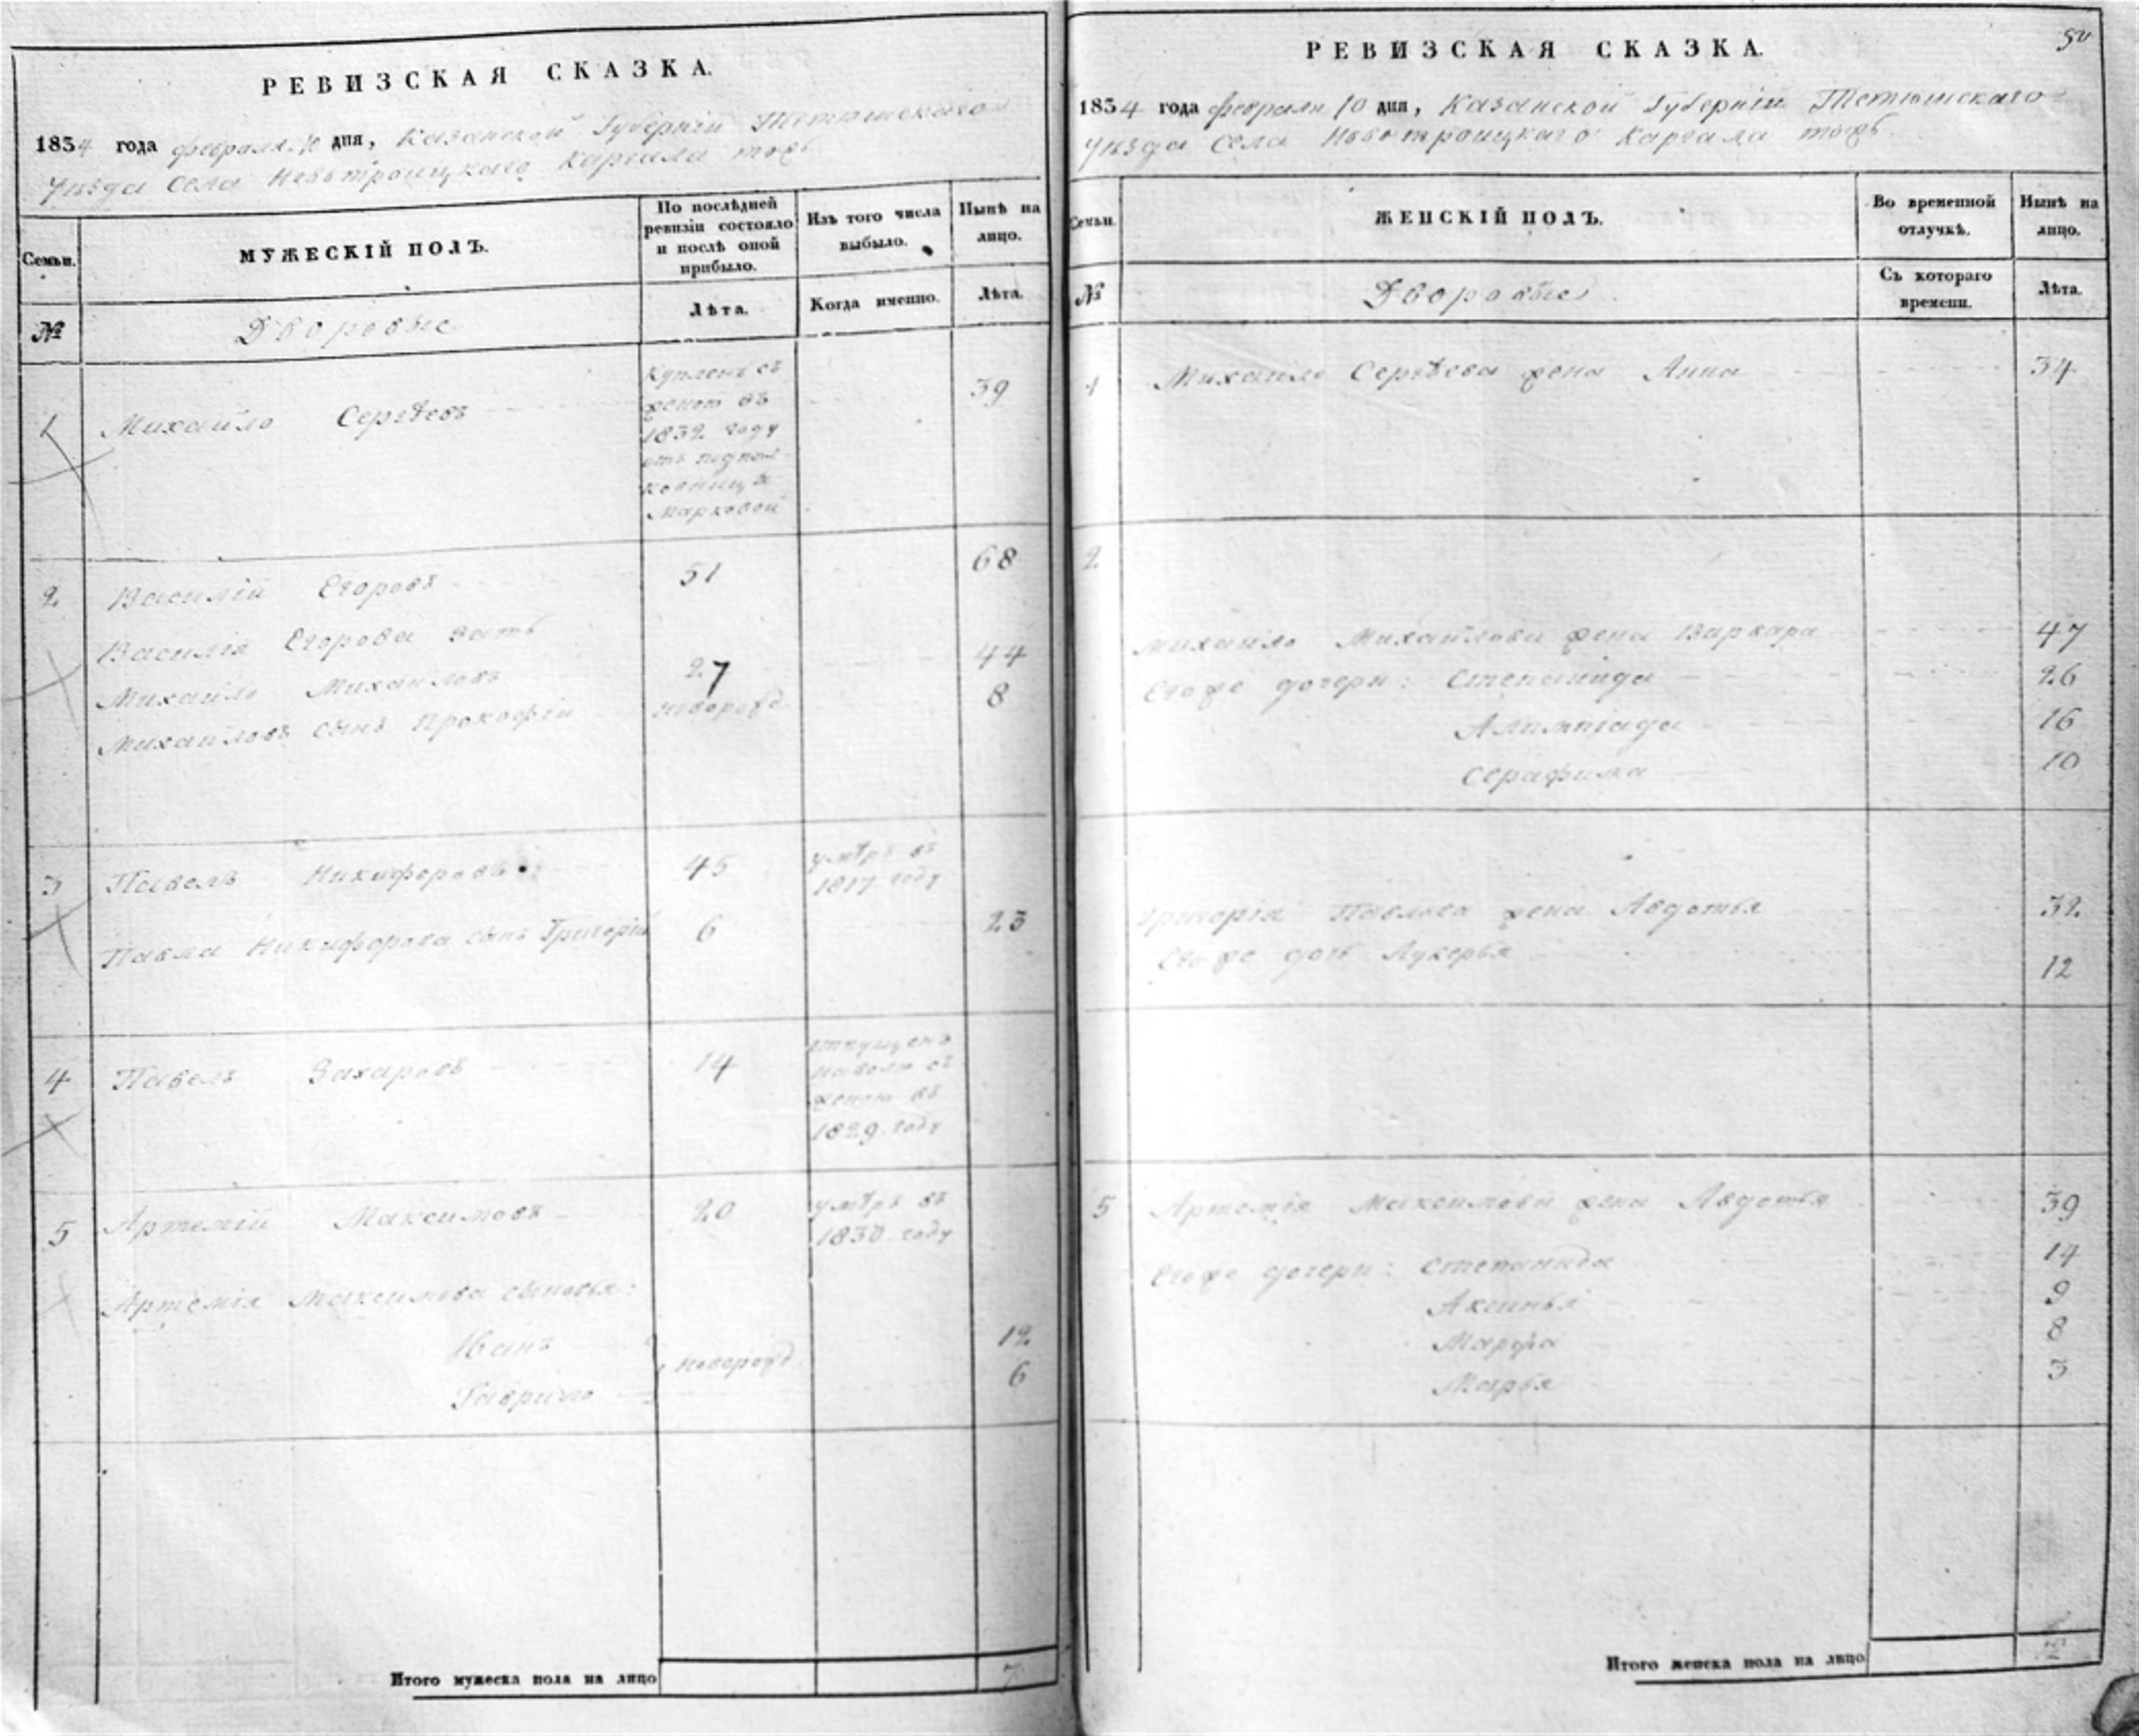 РЕВИЗСКАЯ СКАЗКА.
1834 года февраля 10 дня, Казанской Губернiи Тетюшскаго
уѣзда Села Новотроицкаго Каргала тожъ
Семьи.
МУЖЕСКIЙ ПОЛЪ.
По послѣдней
ревизiи состояло
и послѣ оной
прибыло.
Изъ того числа
выбыло.
Нынѣ на
лицо.
№
Дворовые
Лѣта.
Когда именно.
Лѣта.
1
Михайло Сергѣевъ
Купленъ съ
женою въ
1832 году
отъ подпол-
ковницы
Марковой
39
2
Василiй Егоровъ
51
68
Василiя Егорова зять
Михайло Михайловъ
27
44
Михайловъ сынъ Прокофiй
новорожд.
8
3
Павелъ Никифоровъ
45
умѣръ въ
1817 году
Павла Никифорова сынъ Григорiй
6
23
4
Павелъ Захаровъ
14
отпущенъ
наволю съ
женою въ
1829 году
5
Артемiй Максимовъ
20
умѣръ въ
1830 году
Артемiя Максимова сыновья:
Иванъ
12
новорожд.
Гаврило
6
Итого мужеска пола на лицо
7
РЕВИЗСКАЯ СКАЗКА.
50
1834 года февраля 10 дня, Казанской Губернiи Тетюшскаго
уѣзда Села Новотроицкаго Каргала тожъ
Семьи.
ЖЕНСКIЙ ПОЛЪ.
Во временной
отлучкѣ.
Нынѣ на
лицо.
№
Дворовые
Съ котораго
времени.
Лѣта.
1
Михайло Сергѣева жена Анна
34
2
Михайло Михайлова жена Варвара
47
Егоже дочери: Степанида
26
Алимпiада
16
Серафима
10
Григорiя Павлова жена Авдотья
32
Егоже дочь Лукерья
12
5
Артемiя Максимова жена Авдотья
39
Егоже дочери: Степанида
14
Аксинья
9
Марфа
8
Марья
3
Итого женска пола на лицо
12